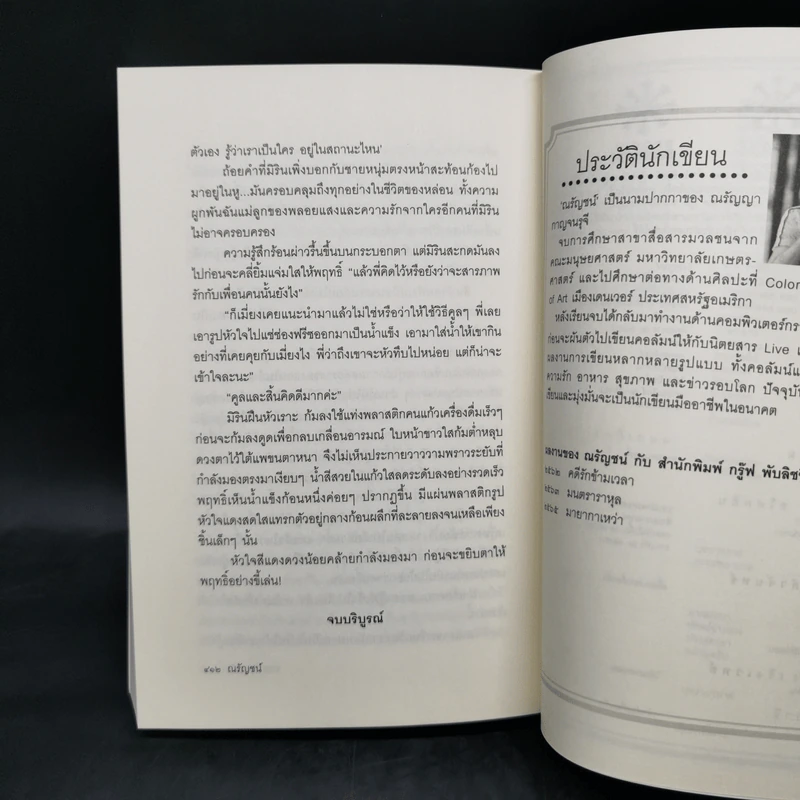 ตัวเอง รู้ว่าเราเป็นใคร อยู่ในสถานะไหน'
ถ้อยคำที่มิรินเพิ่งบอกกับชายหนุ่มตรงหน้าสะท้อนก้องไป
มาอยู่ในหู...มันครอบคลุมถึงทุกอย่างในชีวิตของหล่อน ทั้งความ
ผูกพันฉันแม่ลูกของพลอยแสงและความรักจากใครอีกคนที่มิริน
ไม่อาจครอบครอง
ความรู้สึกร้อนผ่าวรื้นขึ้นบนกระบอกตา แต่มิรินสะกดมันลง
ไปก่อนจะคลี่ยิ้มแจ่มใสให้พฤทธิ์ "แล้วพี่คิดไว้หรือยังว่าจะสารภาพ
รักกับเพื่อนคนนั้นยังไง"
"ก็เมี่ยงเคยแนะนำมาแล้วไม่ใช่หรือว่าให้ใช้วิธีคูลๆ พี่เลย
เอารูปหัวใจไปแช่ช่องฟรีซออกมาเป็นน้ำแข็ง เอามาใส่น้ำให้เขากิน
อย่างที่เคยคุยกับเมี่ยงไง พี่ว่าถึงเขาจะหัวทึบไปหน่อย แต่ก็น่าจะ
เข้าใจละนะ"
"คูลและสิ้นคิดดีมากค่ะ"
มิรินฝืนหัวเราะ ก้มลงใช้แท่งพลาสติกคนแก้วเครื่องดื่มเร็วๆ
ก่อนจะก้มลงดูดเพื่อกลบเกลื่อนอารมณ์ ใบหน้าขาวใสก้มต่ำหลุบ
ดวงตาไว้ใต้แพขนตาหนา จึงไม่เห็นประกายวาววามพราวระยับที่
กำลังมองตรงมาเงียบๆ น้ำสีสวยในแก้วใสลดระดับลงอย่างรวดเร็ว
พฤทธิ์เห็นน้ำแข็งก้อนหนึ่งค่อยๆ ปรากฏขึ้น มีแผ่นพลาสติกรูป
หัวใจแดงสดใสแทรกตัวอยู่กลางก้อนผลึกที่ละลายลงจนเหลือเพียง
ชิ้นเล็กๆ นั้น
หัวใจสีแดงดวงน้อยคล้ายกำลังมองมา ก่อนจะขยิบตาให้
พฤทธิ์อย่างขี้เล่น!
จบบริบูรณ์
๔๑๒ ณรัญชน์
ประวัตินักเขียน
'ณรัญชน์' เป็นนามปากกาของ ณรัญญา
กาญจนรุจี
จบการศึกษาสาขาสื่อสารมวลชนจาก
คณะมนุษยศาสตร์ มหาวิทยาลัยเกษตร-
ศาสตร์ และไปศึกษาต่อทางด้านศิลปะที่ Color
of Art เมืองเดนเวอร์ ประเทศสหรัฐอเมริกา
หลังเรียนจบได้กลับมาทำงานด้านคอมพิวเตอร์กร
ก่อนจะผันตัวไปเขียนคอลัมน์ให้กับนิตยสาร Live
ผลงานการเขียนหลากหลายรูปแบบ ทั้งคอลัมน์แ
ความรัก อาหาร สุขภาพ และข่าวรอบโลก ปัจจุบั
เขียนและมุ่งมั่นจะเป็นนักเขียนมืออาชีพในอนาคต
ผลงานของ ณรัญชน์ กับ สำนักพิมพ์ กรู๊ฟ พับลิชชิ
๒๕๖๒ คดีรักข้ามเวลา
๒๕๖๓ มนตราราหุล
๒๕๖๕ มายากาเหว่า